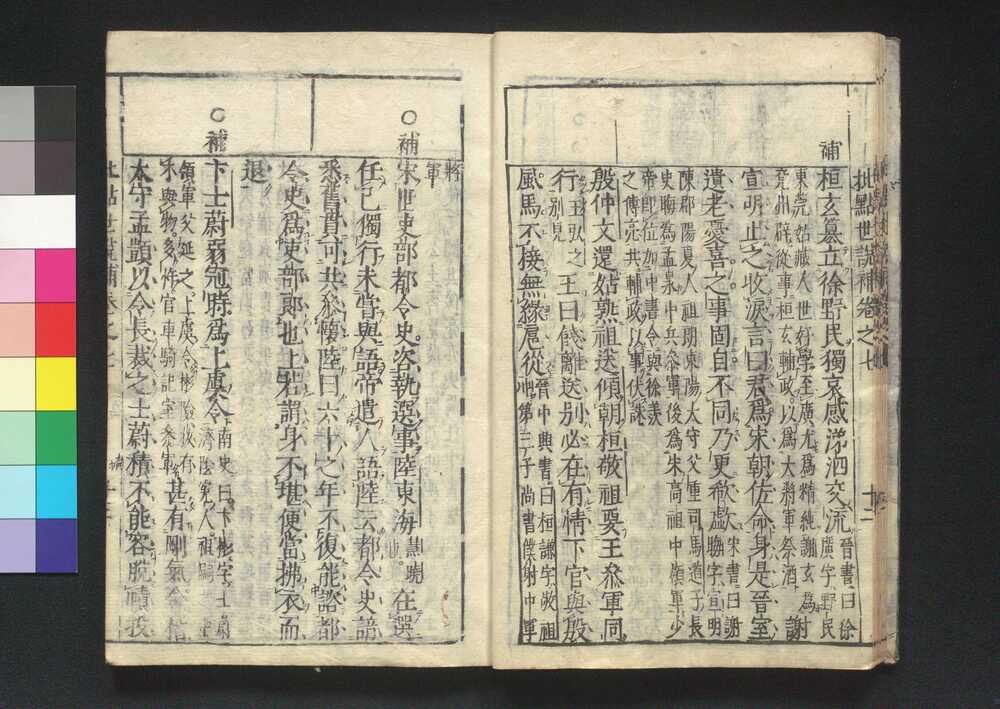 批點世說補卷之七
十二
補
桓玄篡立徐野民獨哀感涕泗交流
晉書曰徐廣字野民
東莞姑幕人世好學至廣尤爲精純謝玄爲
兗州辟從事桓玄輔政以爲大將軍祭酒
謝
宣明止之收淚言曰君爲宋朝佐命身是晉室
遺老憂喜之事固自不同乃更歔欷
宋書曰謝
陳郡陽夏人祖朗東陽太守父重司馬道子長
史晦爲孟昶中兵參軍後爲宋高祖中領軍少
帝卽位加中書令與徐羨
之傅亮共輔政以事伏誅
殷仲文還姑熟祖送傾朝桓敬祖要王參軍同
行
王弘之
別見
王曰餞離送別必在有情下官與殷
風馬不接無緣扈從
晉中興書曰桓謙字敬祖
沖第三子尚書僕射中軍
將
軍
○補
宋世吏部都令史咨執選事陸東海
慧曉
在選
任己獨行未嘗與語帝遣人語陸云都令史諳
悉舊貫可共參懷陸曰六十之年不復能諮都
令史爲吏部郎也上若謂身不堪便當拂衣而
退
○補
卞士蔚弱冠時爲上虞令
南史曰卞彬字士蔚
濟陰冤句人祖嗣
領軍父延之上虞令彬險拔有
才與物多忤官車騎記室參軍
甚有剛氣會稽
太守孟顗以令長裁之士蔚積不能容脫幘投
批點世說補卷之七